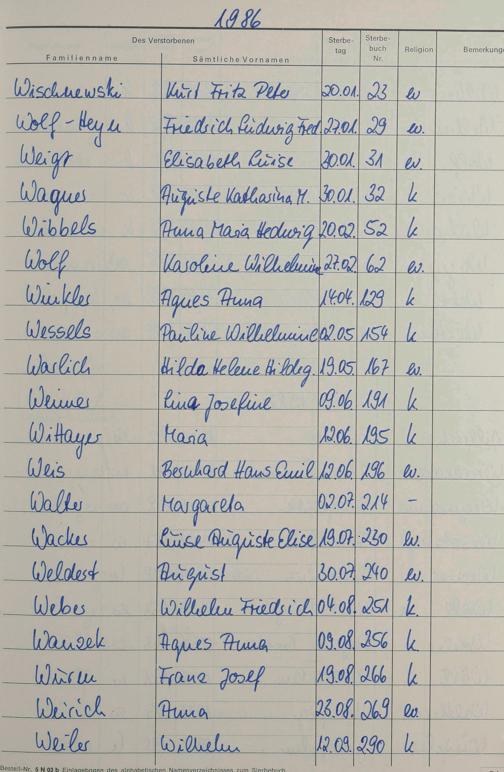 1986
Des Verstorbenen Sterbe- Sterbe-
Familienname Sämtliche Vornamen tag buch Nr. Religion Bemerkunge
Wischnewski Kurt Fritz Peter 20.01. 23 ev
Wolf-Heyn Friedrich Ludwig Fred. 27.01. 29 ev.
Weigt Elisabeth Luise 30.01. 31 ev.
Wagner Auguste Katharina M. 30.01. 32 k
Wibbels Anna Maria Hedwig 20.02. 52 k
Wolf Karoline Wilhelmine 27.02 62 ev.
Winkler Agnes Anna 14.04. 129 k
Wessels Pauline Wilhelmine 02.05 154 k
Warlich Hilda Helene Hildeg. 19.05. 167 ev.
Weimer Lina Josefine 09.06 191 k
Wittayer Maria 12.06. 195 k
Weis Bernhard Hans Emil 12.06. 196 ev.
Walter Margareta 02.07. 214 -
Wacker Luise Auguste Elise 19.07. 230 ev.
Weldert August 30.07. 240 ev.
Weber Wilhelm Friedrich 04.08. 251 k.
Wansek Agnes Anna 09.08. 256 k
Wurm Franz Josef 19.08. 266 k
Weirich Anna 23.08. 269 ev.
Weiler Wilhelm 12.09. 290 k
Bestell-Nr. 5 N 03 b Einlagebogen des alphabetischen Namenverzeichnisses zum Sterbebuch